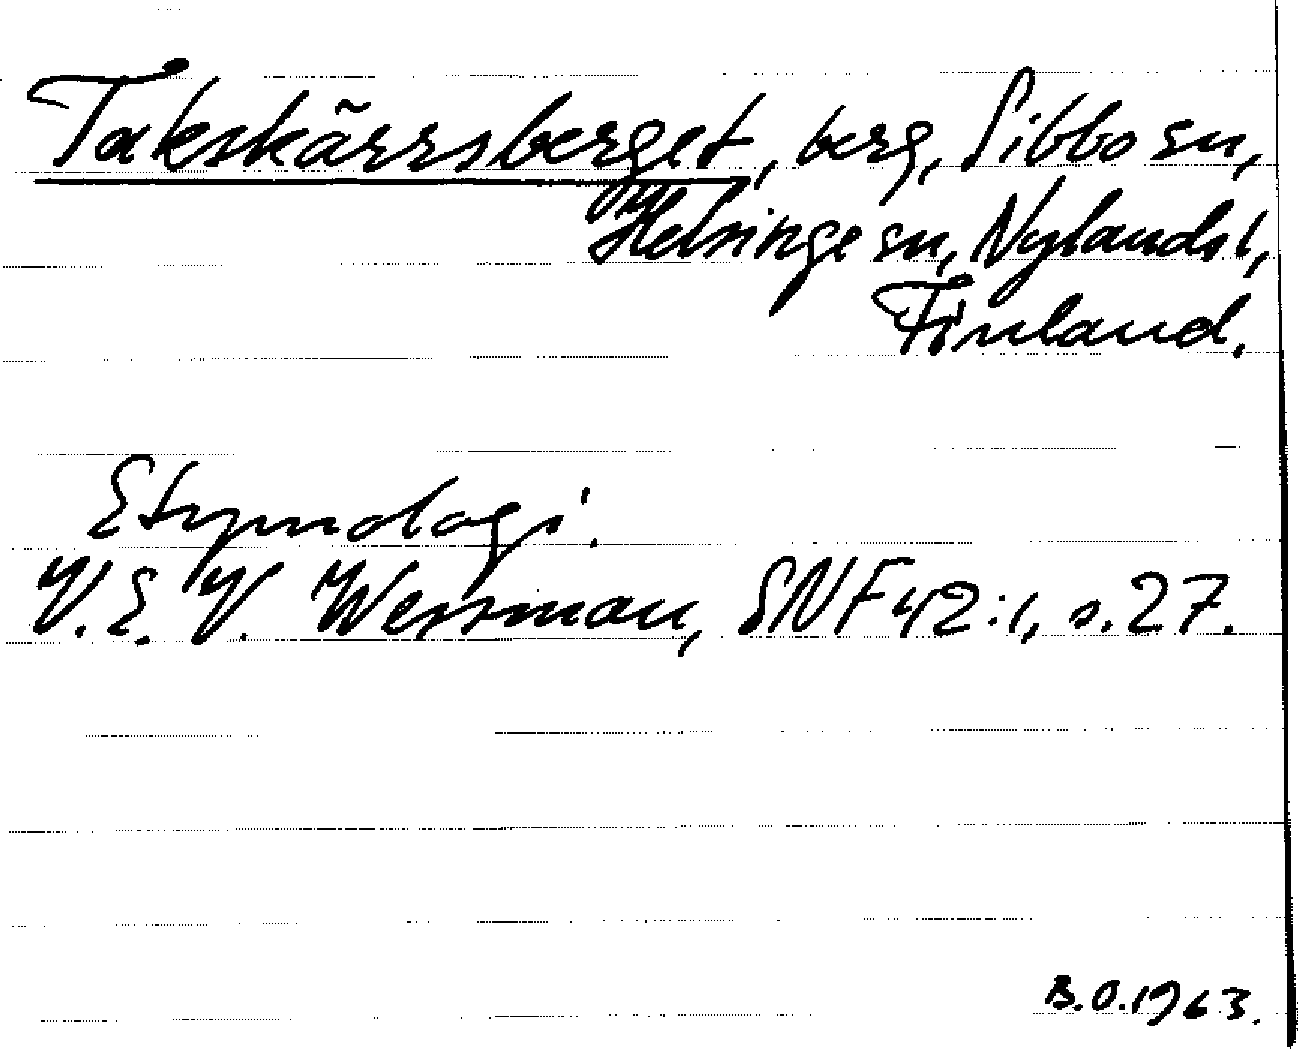 Takskärrsberget, berg, Sibbo sn,
Helsinge sn, Nylands l,
Finland.
Etymologi.
V.E.V. Wessman, SNF 42:1, s. 27.
B.O. 1963.